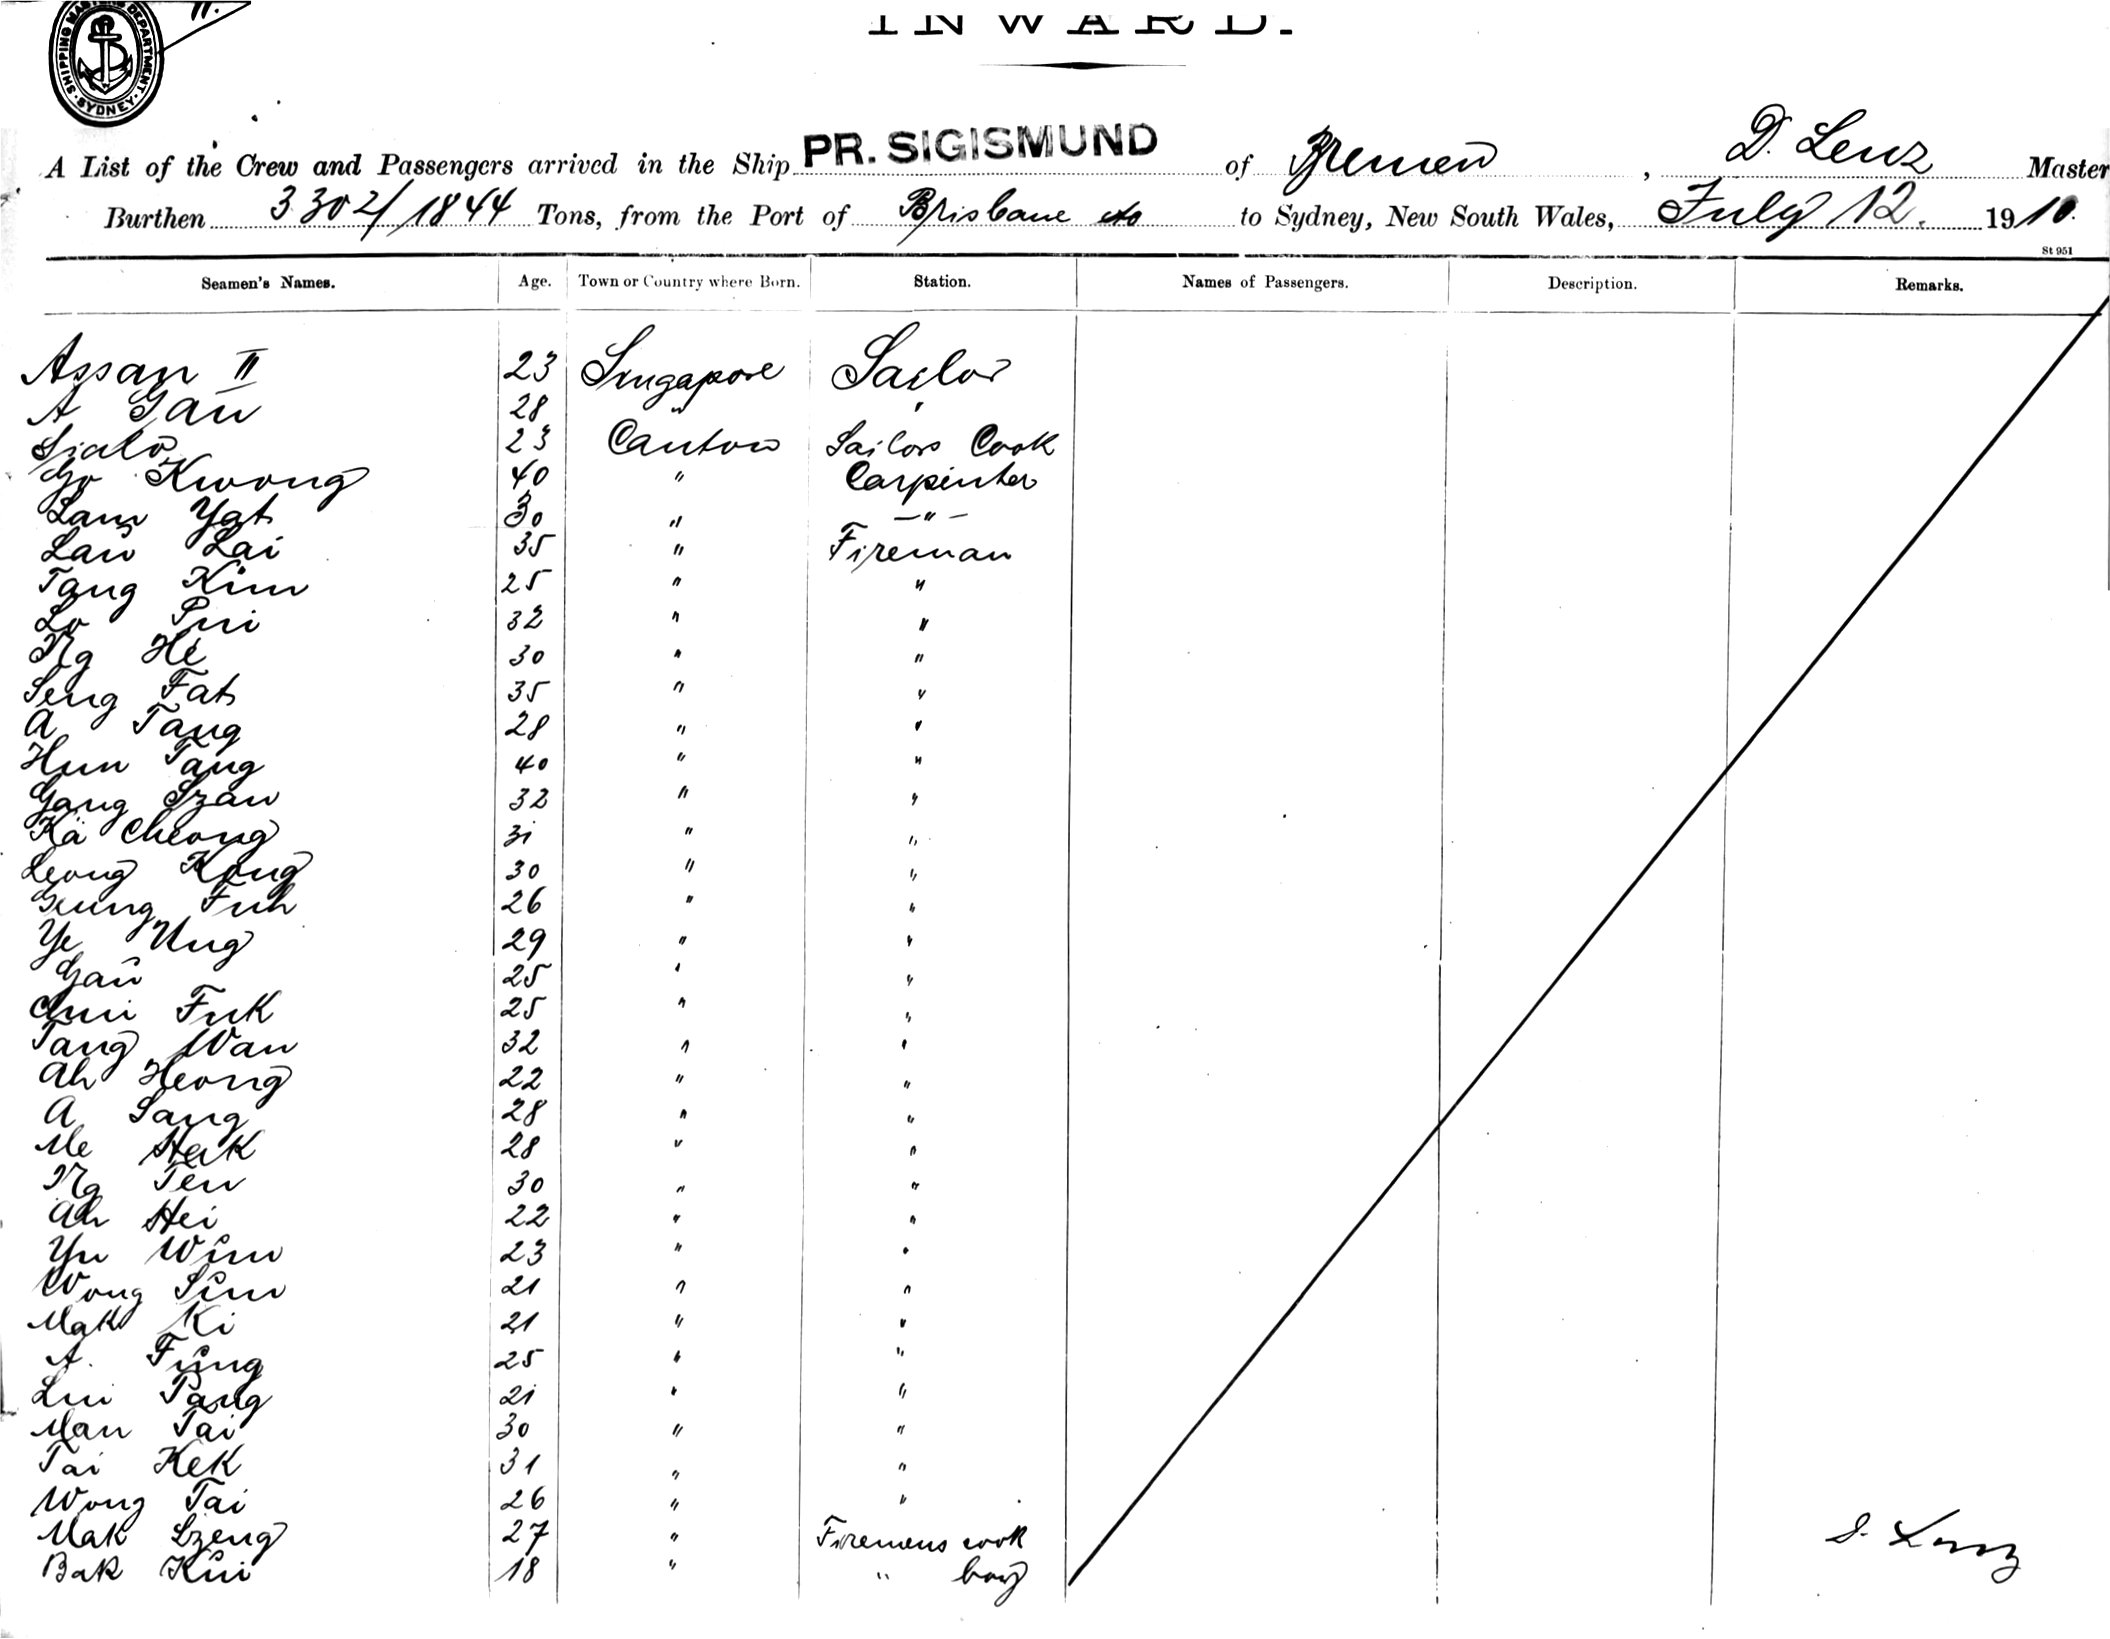 11.
SHIPPING MASTERS DEPARTMENT. SYDNEY.
INWARD.
A List of the Crew and Passengers arrived in the Ship PR. SIGISMUND of Bremen, D. Lenz Master
Burthen 3302/1844 Tons, from the Port of Brisbane to Sydney, New South Wales, July 12. 1910.
St 951
Seamen's Names. Age. Town or Country where Born. Station. Names of Passengers. Description. Remarks.
Assan II 23 Singapore Sailor
A Gau 28 " "
Sialo 23 Canton Sailors Cook
Go Kwong 40 " Carpenter
Lam Yat 30 " — " —
Lau Lai 35 " Fireman
Tang Kim 25 " "
Lo Pui 32 " "
Ng He 30 " "
Seng Fat 35 " "
A Tang 28 " "
Hun Tang 40 " "
Gang Szan 32 " "
Kä Cheong 31 " "
Leong Kong 30 " "
Fuh 26 " "
Ye Ung 29 " "
Gau 25 " "
Chui Fuk 25 " "
Tang Wan 32 " "
Ah Heong 22 " "
A Sang 28 " "
Me Hak 28 " "
Ng Ten 30 " "
Ah Hei 22 " "
Yu Wim 23 " "
Wong Sum 21 " "
Mak Ki 21 " "
A. Fung 25 " "
Lui Pang 21 " "
Man Tai 30 " "
Tai Kek 31 " "
Wong Tai 26 " "
Mak Szeng 27 " Firemens cook
Bak Kui 18 " " boy
D. Lenz